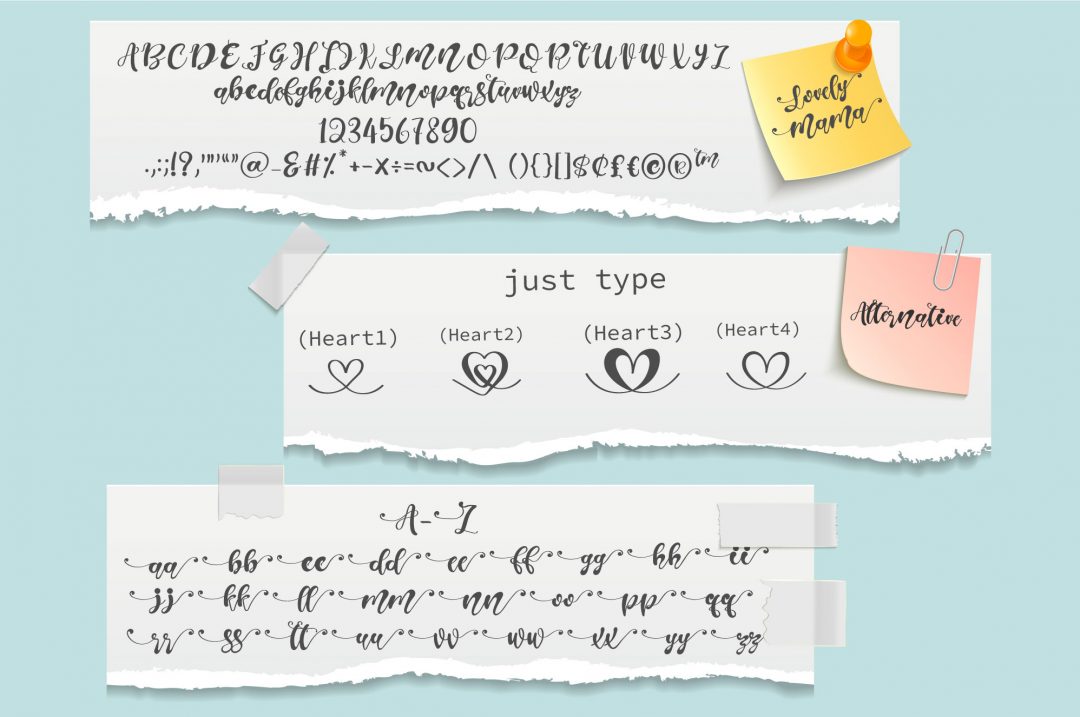 ABCDEFGHIJKLMNOPQRTUVWXYZ
abcdefghijklmnopqrstuvwxyz
1234567890
.,:;!?,'"'"‘“”@_&#%*+-x÷=~<>/\ (){}[]$¢£€©®™
Lovely
mama
just type
Alternative
(Heart1) (Heart2) (Heart3) (Heart4)
A-Z
aa bb cc dd ee ff gg hh ii
jj kk ll mm nn oo pp qq
rr ss tt uu vv ww xx yy zz